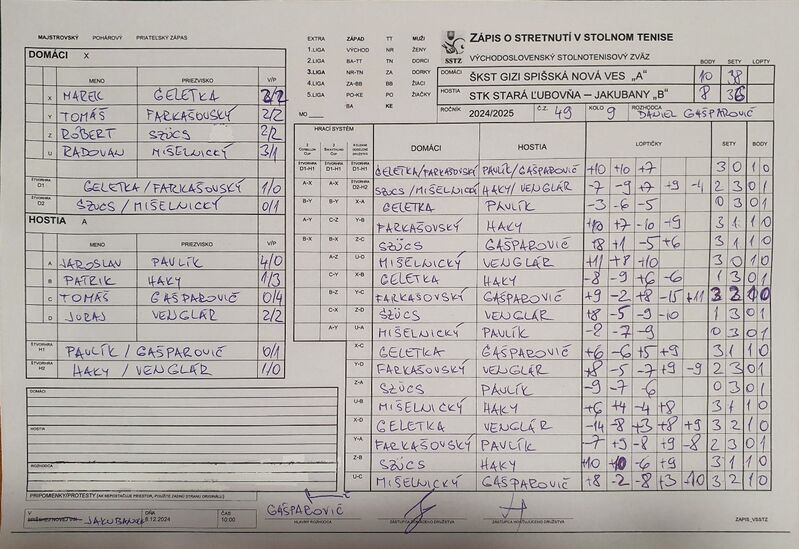 MAJSTROVSKÝ POHÁROVÝ PRIATEĽSKÝ ZÁPAS
DOMÁCI X
MENO PRIEZVISKO V/P
X MAREK GELETKA 2/2
Y TOMÁŠ FARKAŠOVSKÝ 2/2
Z RÓBERT SZÜCS 2/2
U RADOVAN MIŠELNICKÝ 3/1
ŠTVORHRA D1 GELETKA/FARKAŠOVSKÝ 1/0
ŠTVORHRA D2 SZÜCS/MIŠELNICKÝ 0/1
HOSTIA A
MENO PRIEZVISKO V/P
A JAROSLAV PAVLÍK 4/0
B PATRIK HAKY 1/3
C TOMÁŠ GAŠPAROVIČ 0/4
D JURAJ VENGLÁR 2/2
ŠTVORHRA H1 PAVLÍK / GAŠPAROVIČ 0/1
ŠTVORHRA H2 HAKY / VENGLÁR 1/0
DOMÁCI
HOSTIA
ROZHODCA
PRIPOMIENKY/PROTESTY (AK NEPOSTAČUJE PRIESTOR, POUŽITE ZADNÚ STRANU ORIGINÁLU)
V JAKUBANY DŇA 8.12.2024 ČAS 10:00
EXTRA ZÁPAD TT MUŽI
1.LIGA VÝCHOD NR ŽENY
2.LIGA BA-TT TN DORCI
3.LIGA NR-TN ZA DORKY
4.LIGA ZA-BB BB ŽIACI
5.LIGA PO-KE PO ŽIAČKY
BA KE
MO
SSTZ
ZÁPIS O STRETNUTÍ V STOLNOM TENISE
VÝCHODOSLOVENSKÝ STOLNOTENISOVÝ ZVÄZ
BODY SETY LOPTY
DOMÁCI ŠKST GIZI SPIŠSKÁ NOVÁ VES „A" 10 38
HOSTIA STK STARÁ ĽUBOVŇA – JAKUBANY „B" 8 36
ROČNÍK 2024/2025 Č.Z. 49 KOLO 9 ROZHODCA DANIEL GAŠPAROVIČ
HRACÍ SYSTÉM DOMÁCI HOSTIA LOPTIČKY SETY BODY
ŠTVORHRA D1-H1 ŠTVORHRA D1-H1 GELETKA/FARKAŠOVSKÝ PAVLÍK/GAŠPAROVIČ +10 +10 +7 3 0 1 0
A-X A-X ŠTVORHRA D2-H2 SZÜCS/MIŠELNICKÝ HAKY/VENGLÁR -7 -9 +7 +9 -4 2 3 0 1
B-Y B-Y X-A GELETKA PAVLÍK -3 -6 -5 0 3 0 1
A-Y C-Z Y-B FARKAŠOVSKÝ HAKY +10 +7 -10 +9 3 1 1 0
B-X B-X Z-C SZÜCS GAŠPAROVIČ +8 +1 -5 +6 3 1 1 0
A-Z U-D MIŠELNICKÝ VENGLÁR +11 +8 +10 3 0 1 0
C-Y X-B GELETKA HAKY -8 -9 +6 -6 1 3 0 1
B-Z Y-C FARKAŠOVSKÝ GAŠPAROVIČ +9 -2 +8 -15 +11 3 2 1 0
C-X Z-D SZÜCS VENGLÁR +8 -5 -9 -10 1 3 0 1
A-Y U-A MIŠELNICKÝ PAVLÍK -2 -7 -9 0 3 0 1
X-C GELETKA GAŠPAROVIČ +6 -6 +5 +9 3 1 1 0
Y-D FARKAŠOVSKÝ VENGLÁR +8 -5 -7 +9 -9 2 3 0 1
Z-A SZÜCS PAVLÍK -9 -7 -6 0 3 0 1
U-B MIŠELNICKÝ HAKY +6 +4 -4 +8 3 1 1 0
X-D GELETKA VENGLÁR -14 -8 +3 +8 +9 3 2 1 0
Y-A FARKAŠOVSKÝ PAVLÍK -7 +9 -8 +9 -8 2 3 0 1
Z-B SZÜCS HAKY +10 +10 -6 +9 3 1 1 0
U-C MIŠELNICKÝ GAŠPAROVIČ +8 -2 -8 +3 -10 3 2 1 0
GAŠPAROVIČ
HLAVNÝ ROZHODCA ZÁSTUPCA DOMÁCEHO DRUŽSTVA ZÁSTUPCA HOSŤUJÚCEHO DRUŽSTVA ZAPIS_VSSTZ